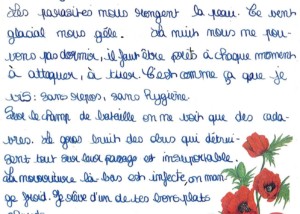 Les parasites nous rongent la peau. Ce vent
glacial nous gèle. La nuit nous ne pou-
vons pas dormir, il faut être prêts à chaque moment
à attaquer, à tuer. C'est comme ça que je
vis : sans repos, sans hygiène.
Sur le champ de bataille on ne voit que des cada-
vres. Le gros bruit des obus qui détrui-
sent tout sur leur passage est insuportable.
La nourriture là bas est infecte, on man-
ge froid. Je rêve d'un de tes bons plats